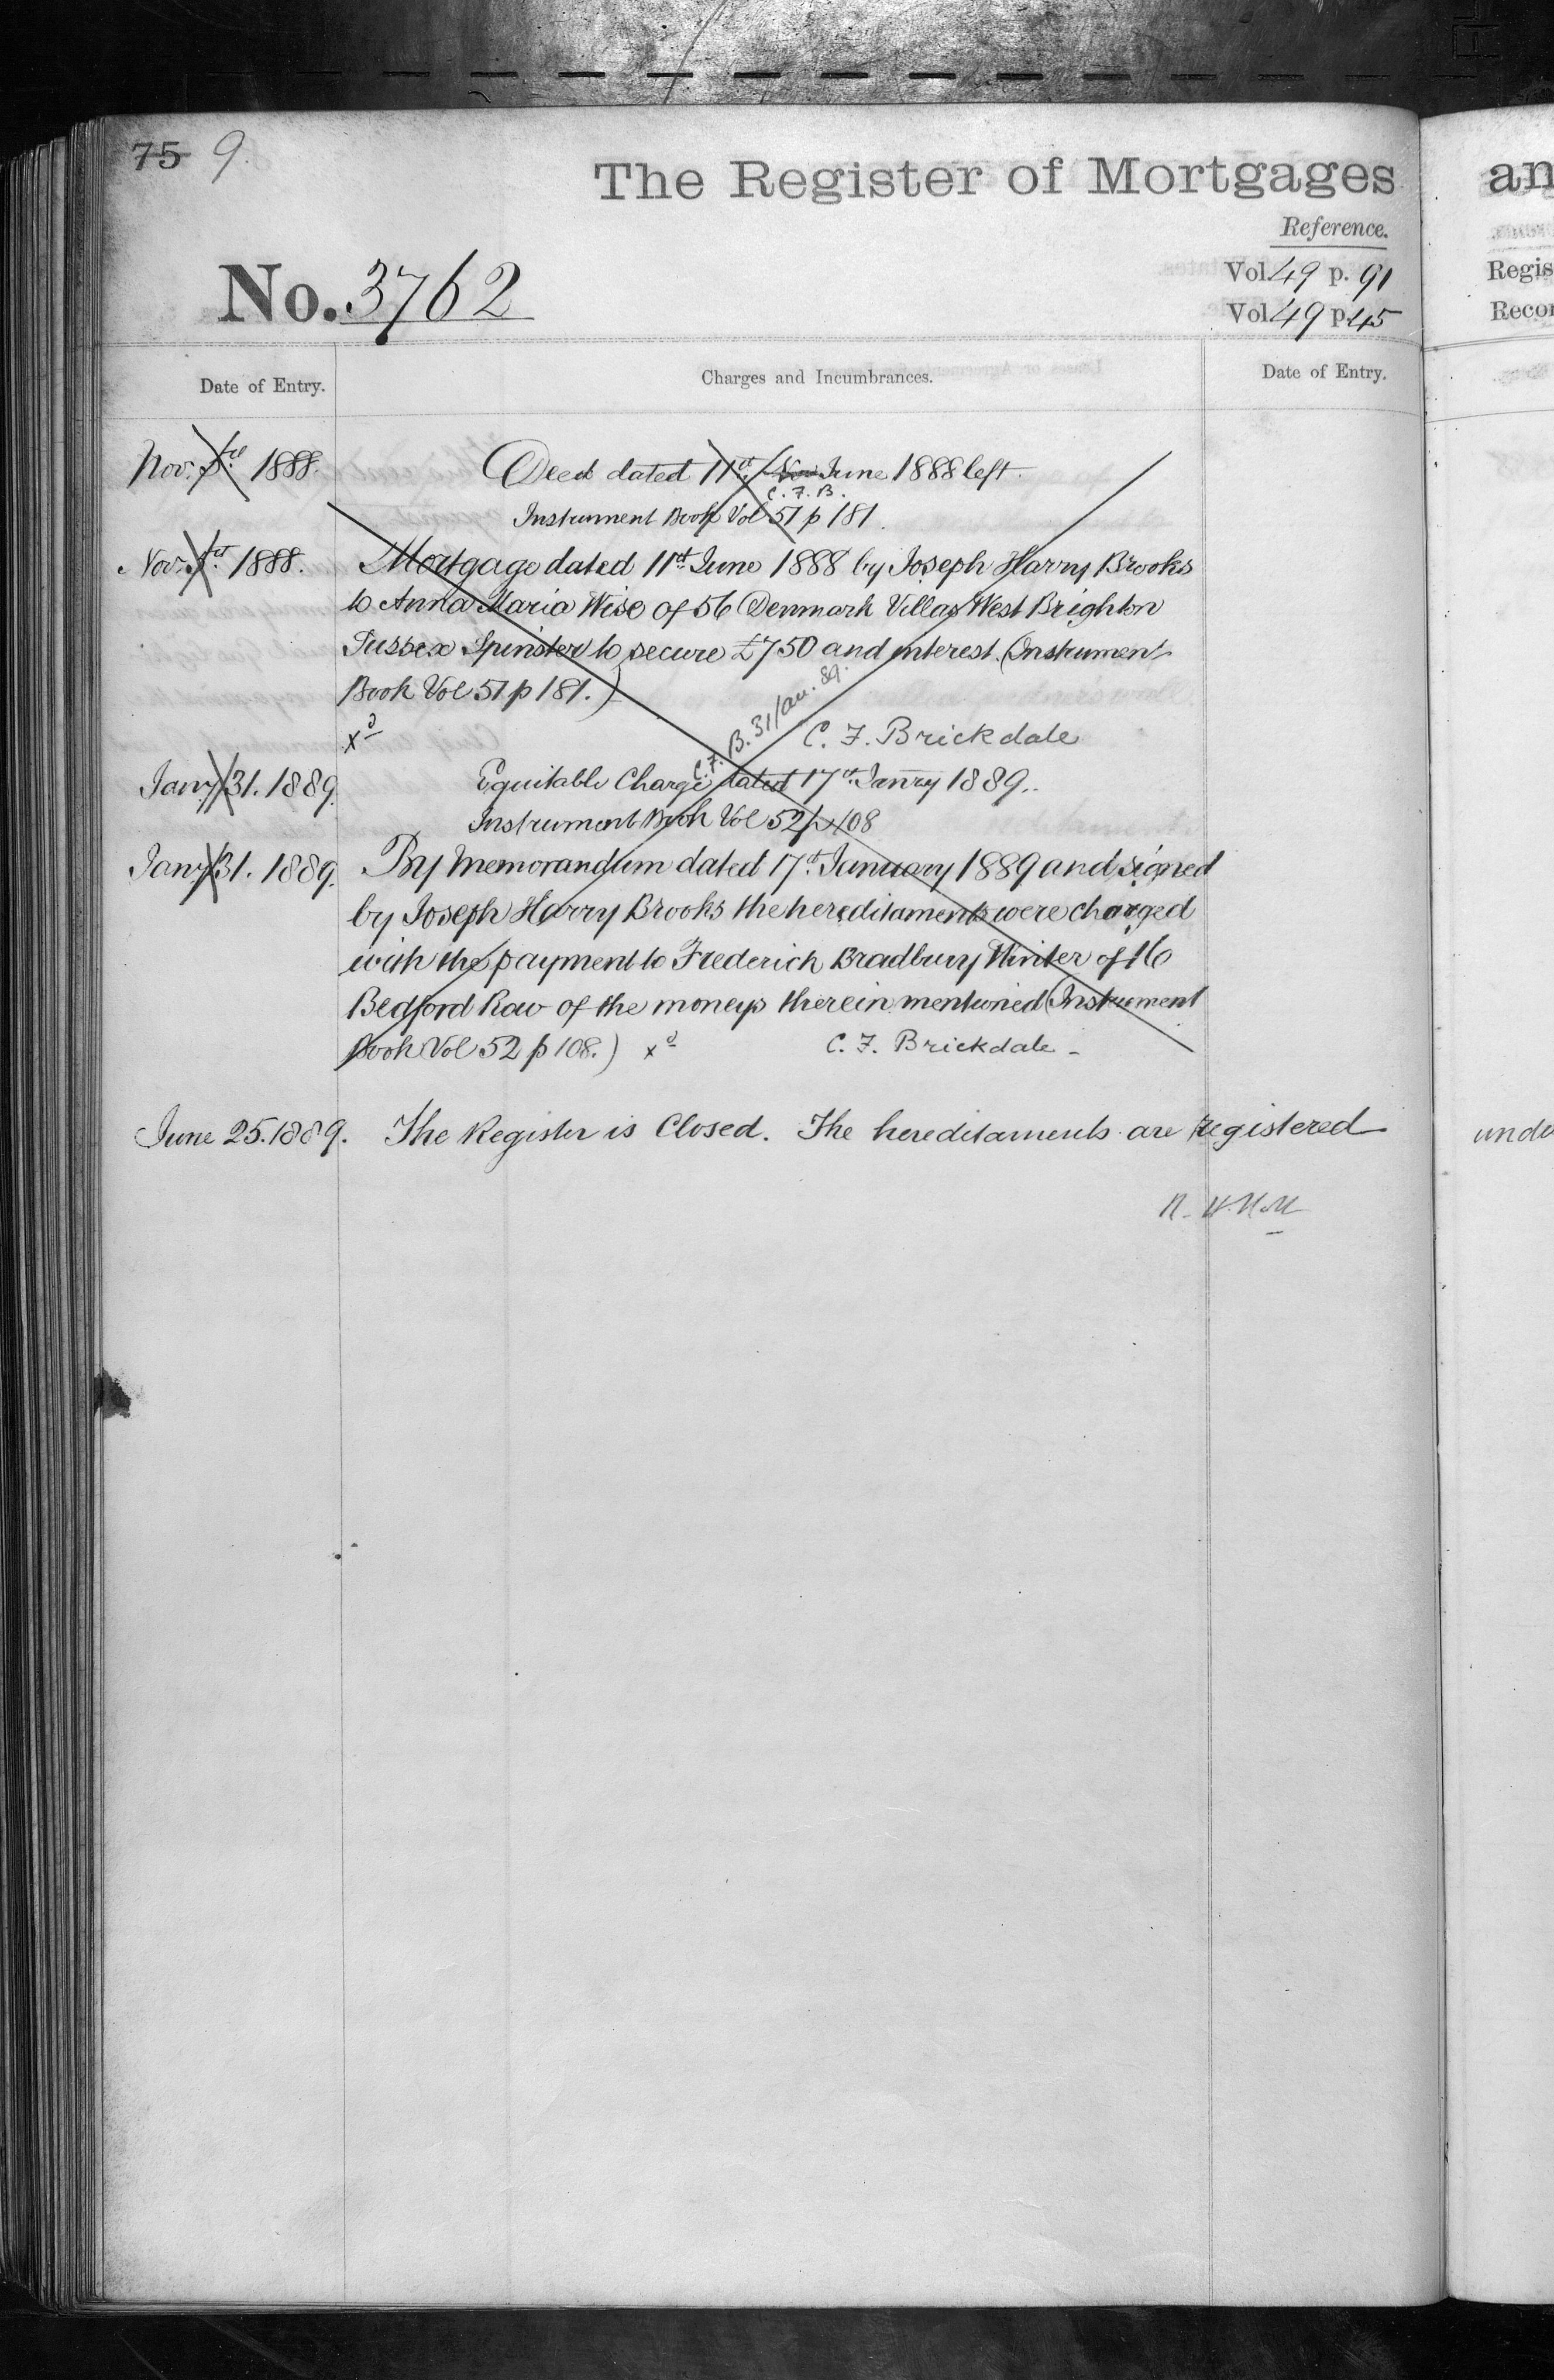 75 9.
The Register of Mortgages
an
Reference.
No. 3762
Vol 49 p. 91
Regis
Vol 49 p 45
Recor
Date of Entry.
Charges and Incumbrances.
Date of Entry.
Nov. 1888. Deed dated 11th Nov June 1888 left.
C. F. B.
Instrument Book Vol 51 p 181.
Nov. 1888. Mortgage dated 11th June 1888 by Joseph Harry Brooks
to Anna Maria Wise of 56 Denmark Villas West Brighton
Sussex Spinster to secure £750 and interest. (Instrument
Book Vol 51 p 181.)
C. F. B. 31 Jan. 89.
xd C. F. Brickdale
Jany 31. 1889. Equitable Charge dated 17th Janry 1889.
Instrument Book Vol 52 p 108
Jany 31. 1889. By Memorandum dated 17th January 1889 and signed
by Joseph Harry Brooks the hereditaments were charged
with the payment to Frederick Bradbury Winter of 16
Bedford Row of the moneys therein mentioned (Instrument
Book Vol 52 p 108.) xd C. F. Brickdale
June 25. 1889. The Register is Closed. The hereditaments are registered unde